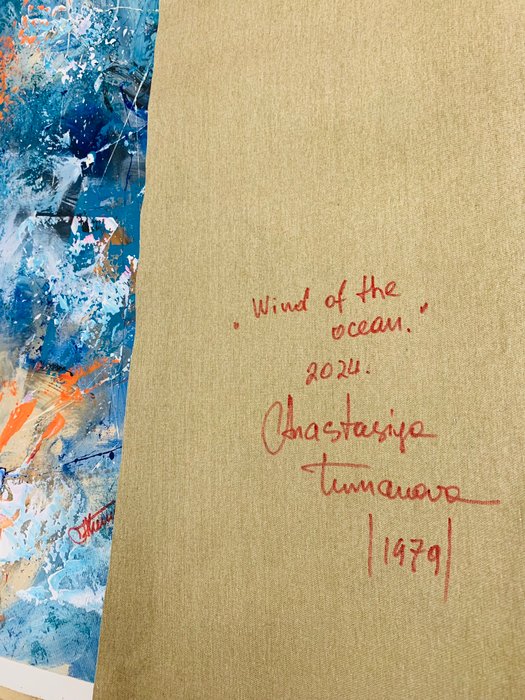 "Wind of the
ocean."
2024.
Anastasiya
Tumanova
|1979|